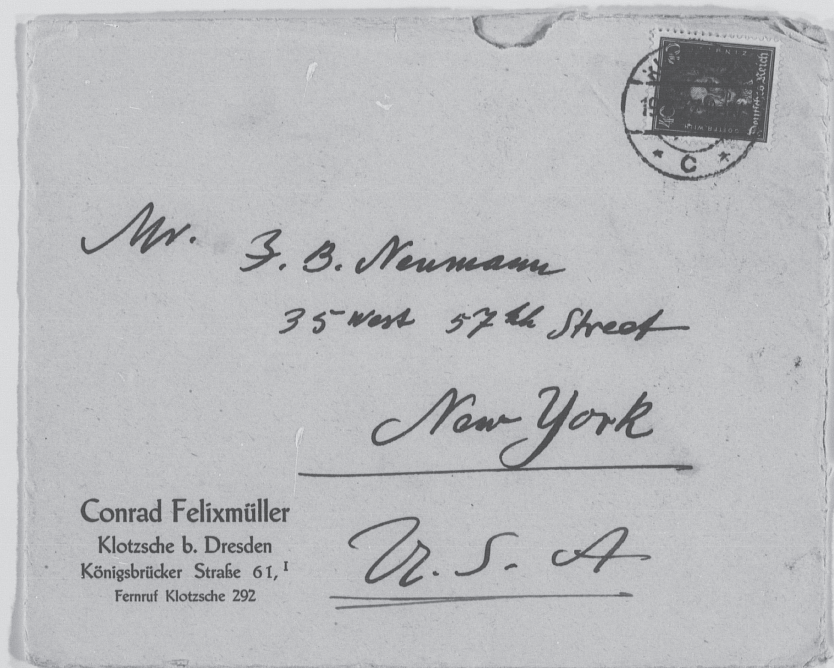 Deutsches Reich
* C *
Mr. J. B. Neumann
35 West 57th Street
New York
U. S. A
Conrad Felixmüller
Klotzsche b. Dresden
Königsbrücker Straße 61, I
Fernruf Klotzsche 292